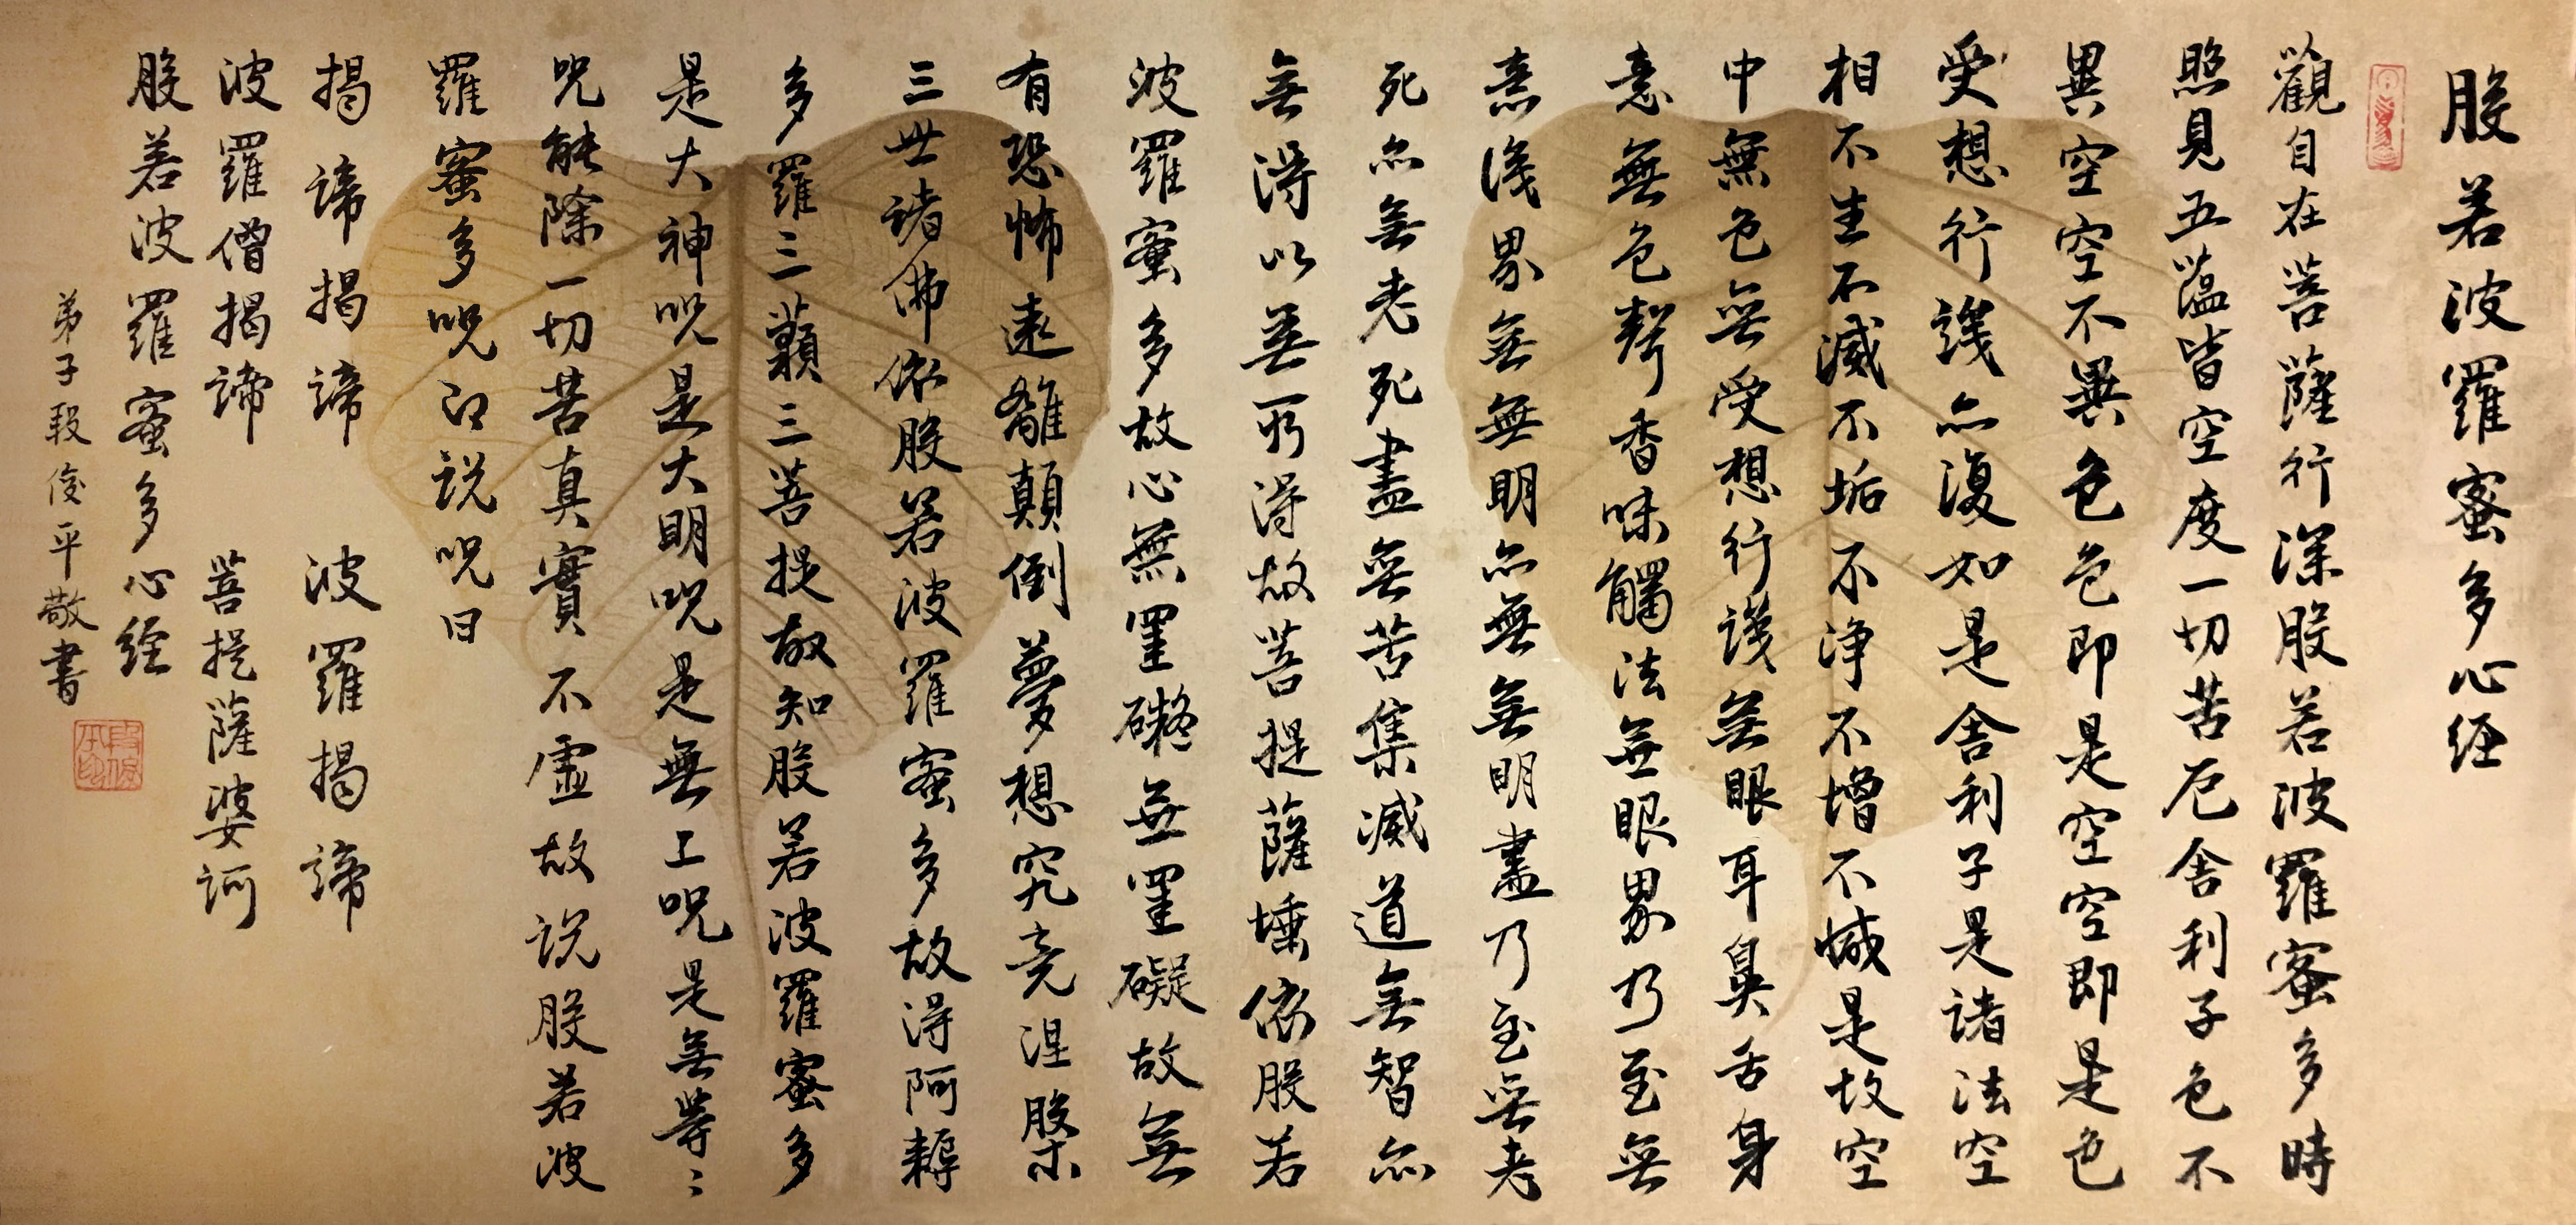 般若波羅蜜多心经
觀自在菩薩行深般若波羅蜜多時
照見五蕴皆空度一切苦厄舍利子色不
異空空不異色色即是空空即是色
受想行識亦復如是舍利子是諸法空
相不生不滅不垢不净不增不减是故空
中無色無受想行識無眼耳鼻舌身
意無色聲香味觸法無眼界乃至無
意識界無無明亦無無明盡乃至無老
死亦無老死盡無苦集滅道無智亦
無得以無所得故菩提薩埵依般若
波羅蜜多故心無罣礙無罣礙故無
有恐怖遠離顛倒夢想究竟涅槃
三世諸佛依般若波羅蜜多故得阿耨
多羅三藐三菩提故知般若波羅蜜多
是大神呪是大明呪是無上呪是無等〻
呪能除一切苦真實不虛故説般若波
羅蜜多呪即説呪曰
揭諦揭諦 波羅揭諦
波羅僧揭諦 菩提薩婆訶
般若波羅蜜多心经
弟子段俊平敬書
段俊平印